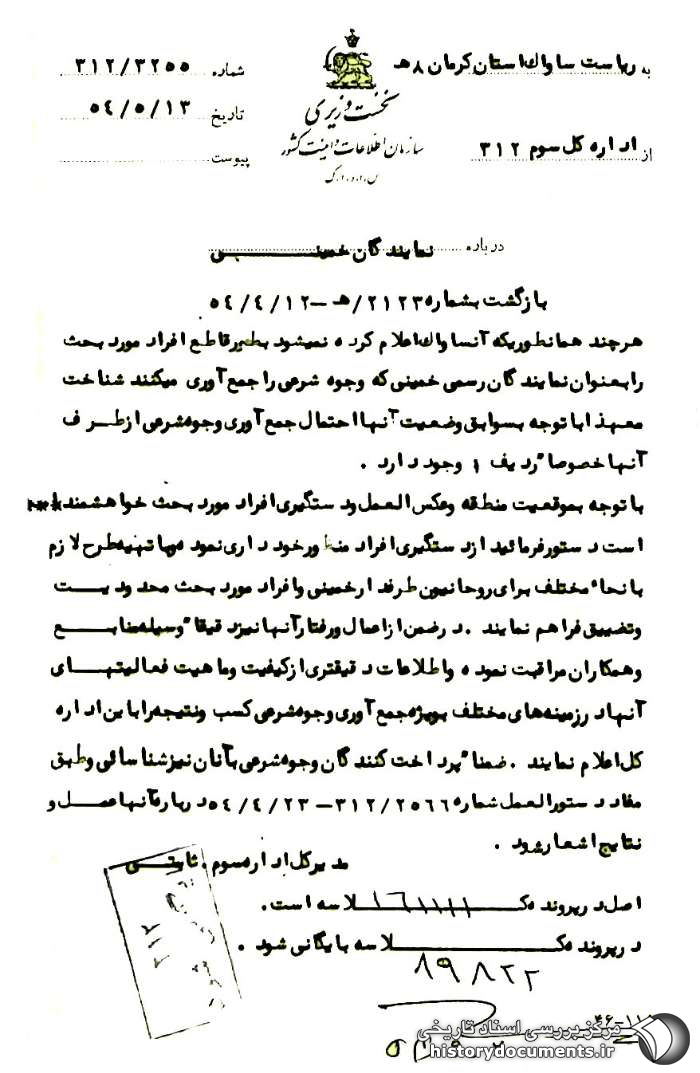 به ریاست ساواک استان کرمان ه‍ ۸
شماره ۳۱۲/۳۲۵۵
تاریخ ۵٤/٥/۱۳
پیوست
نخست وزیری
سازمان اطلاعات و امنیت کشور
س.ا.و.ا.ک
از اداره کل سوم ۳۱۲
درباره نمایندگان خمینی
بازگشت بشماره ۲۱۲۳/ه‍ – ۵٤/٤/۱۲
هرچند همانطوریکه آنساواک اعلام کرده نمیشود بطور قاطع افراد مورد بحث
را بعنوان نمایندگان رسمی خمینی که وجوه شرعی را جمع آوری میکنند شناخت
معهذا با توجه بسوابق وضعیت آنها احتمال جمع آوری وجوه شرعی از طرف
آنها خصوصا" ردیف ۱ وجود دارد .
با توجه بموقعیت منطقه و عکس العمل دستگیری افراد مورد بحث خواهشمند
است دستور فرمائید از دستگیری افراد منظور خودداری نموده و با تهیه طرح لازم
بانحاء مختلف برای روحانیون طرفدار خمینی و افراد مورد بحث محدودیت
و تضییق فراهم نمایند . در ضمن از اعمال و رفتار آنها نیز دقیقا" وسیله منابع
و همکاران مراقبت نموده و اطلاعات دقیقتری از کیفیت و ماهیت فعالیتهای
آنها در زمینه های مختلف بویژه جمع آوری وجوه شرعی کسب و نتیجه را باین اداره
کل اعلام نمایند . ضمنا" پرداخت کنندگان وجوه شرعی بآنان نیز شناسائی و طبق
مفاد دستورالعمل شماره ۳۱۲/۲۵٦٦ – ۵٤/٤/۲۳ درباره آنها عمل و
نتایج اشعار شود .
مدیرکل اداره سوم . ثابتی
اصل در پرونده کلاسه ۱٦۱۱۱۱ است .
در پرونده کلاسه بایگانی شود .
۸۹۸۲۲
۴۶-۱۱
مرکز بررسی اسناد تاریخی
historydocuments.ir